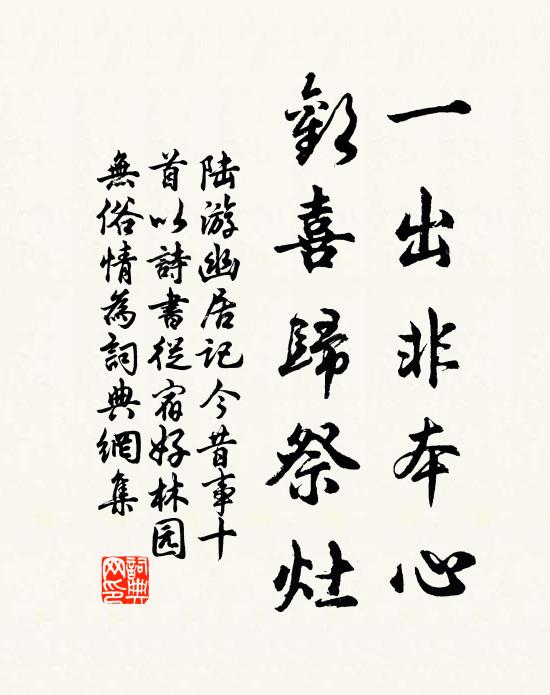 一出非本心
歡喜歸祭灶
陆游幽居记今昔事十
首以詩書從宿好林园
無俗情為詞典網集
詞典网印